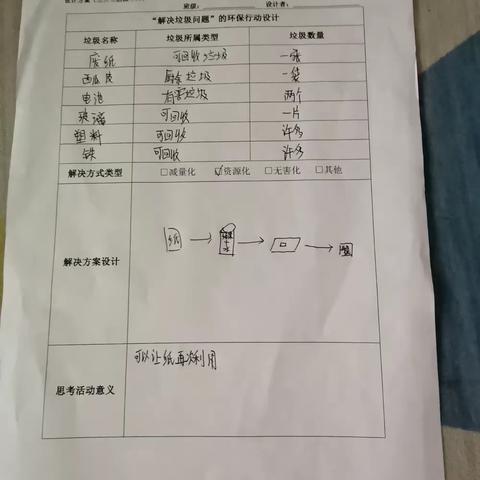 班级：
设计者：
“解决垃圾问题”的环保行动设计
垃圾名称 垃圾所属类型 垃圾数量
废纸 可回收垃圾 一张
西瓜皮 厨余垃圾 一袋
电池 有害垃圾 两个
玻璃 可回收 一片
塑料 可回收 许多
铁 可回收 许多
解决方式类型 □减量化 ☑资源化 □无害化 □其他
解决方案设计
纸
思考活动意义
可以让纸再次利用